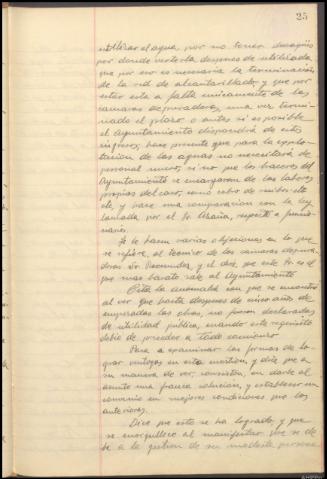 25
utilizar el agua, por no tener desagües
por donde verterla despues de utilizada,
que por eso es necesaria la terminación
de la red de alcantarillado, y que por
estar esta a falta unicamente de las
camaras depuradoras, una vez termi-
nado el plazo o antes si es posible
el Ayuntamiento dispondrá de estos
ingresos; hace presente que para la explo-
tacion de las aguas no necesitará de
personal nuevo, si no que los haceres del
Ayuntamiento se encargaran de las labores
propias del caso, como cobro de recibos etc
etc, y hace una comparacion con la ley
lanzada por el Sr. Azaña, respecto a funcio-
narios.
Se le hacen varias objeciones en lo que
se refiere, al tecnico de las camaras depura-
doras Sr. , y el dice, que este Sr. es el
que mas barato sale al Ayuntamiento
Cita la anomalia con que se encontró
al ver que hasta despues de cinco años de
empezadas las obras, no fueron declaradas
de utilidad publica, cuando este requisito
debio de preceder a todo comienzo
Pasa a examinar las formas de lo-
grar ventajas en esta cuestion, y dice que a
su manera de ver, consisten, en darle al
asunto una franca solucion, y establecer un
convenio en mejores condiciones que los
anteriores.
Dice que esto se ha logrado, y que
se enorgullece al manifestar que se de-
be a la gestion de su modesta persona